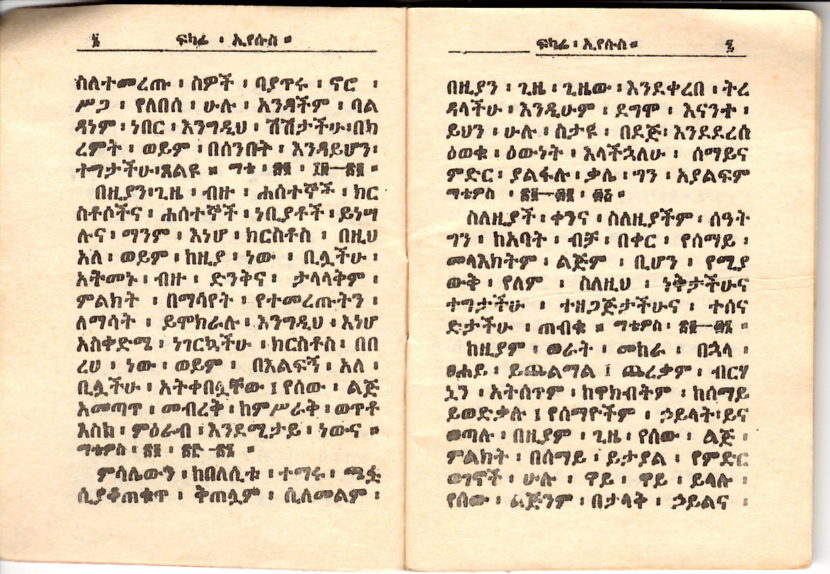 ፮ ፍካሬ ፡ ኢየሱስ ።
ስለተመረጡ ፡ ስዎች ፡ ባያጥሩ ፡ ኖሮ ፡
ሥጋ ፡ የለበሰ ፡ ሁሉ ፡ አንዳችም ፡ ባል
ዳነም ፡ ነበር ፡ እንግዲህ ፡ ሽሽታችሁ ፡ በክ
ረምት ፡ ወይም ፡ በሰንበት ፡ እንዳይሆን ፡
ተግታችሁ ፡ ጸልዩ ። ማቴ ፡
በዚያን ፡ ጊዜ ፡ ብዙ ፡ ሐሰተኞች ፡ ክር
ስቶሶችና ፡ ሐሰተኞች ፡ ነቢያቶች ፡ ይነሣ
ሉና ፡ ማንም ፡ እነሆ ፡ ክርስቶስ ፡ በዚህ
አለ ፡ ወይም ፡ ከዚያ ፡ ነው ፡ ቢሏችሁ ፡
አትመኑ ፡ ብዙ ፡ ድንቅና ፡ ታላላቅም ፡
ምልክት ፡ በማሳየት ፡ የተመረጡትን ፡
ለማሳት ፡ ይሞክራሉ ፡ እንግዲህ ፡ እነሆ
አስቀድሜ ፡ ነገርኳችሁ ፡ ክርስቶስ ፡ በበ
ረሀ ፡ ነው ፡ ወይም ፡ በእልፍኝ ፡ አለ ፡
ቢሏችሁ ፡ አትቀበሏቸው ፤ የሰው ፡ ልጅ
አመጣጥ ፡ መብረቅ ፡ ከምሥራቅ ፡ ወጥቶ
እስከ ፡ ምዕራብ ፡ እንደሚታይ ፡ ነውና ።
ማቴዎስ ፡
ምሳሌውን ፡ ከበለሲቱ ፡ ተማሩ ፡ ጫፏ
ሲያቆጠቁጥ ፡ ቅጠሏም ፡ ሲለመልም ፡
ፍካሬ ፡ ኢየሱስ ። ፯
በዚያን ፡ ጊዜ ፡ ጊዜው ፡ እንደቀረበ ፡ ትረ
ዳላችሁ ፡ እንዲሁም ፡ ደግሞ ፡ እናንተ ፡
ይህን ፡ ሁሉ ፡ ስታዩ ፡ በደጅ ፡ እንደደረሰ
ዕወቁ ፡ ዕውነት ፡ እላችኋለሁ ፡ ሰማይና
ምድር ፡ ያልፋሉ ፡ ቃሌ ፡ ግን ፡ አያልፍም
ማቴዎስ ፡
ስለዚያች ፡ ቀንና ፡ ስለዚያችም ፡ ሰዓት
ግን ፡ ከአባት ፡ ብቻ ፡ በቀር ፡ የሰማይ ፡
መላእክትም ፡ ልጅም ፡ ቢሆን ፡ የሚያ
ውቅ ፡ የለም ፡ ስለዚህ ፡ ነቅታችሁና
ተግታችሁ ፡ ተዘጋጅታችሁና ፡ ተሰና
ድታችሁ ፡ ጠብቁ ። ማቴዎስ ፡
ከዚያም ፡ ወራት ፡ መከራ ፡ በኋላ ፡
ፀሐይ ፡ ይጨልማል ፤ ጨረቃም ፡ ብርሃ
ኗን ፡ አትሰጥም ፡ ከዋክብትም ፡ ከሰማይ
ይወድቃሉ ፤ የሰማዮችም ፡ ኃይላት ፡ ይና
ወጣሉ ፡ በዚያም ፡ ጊዜ ፡ የሰው ፡ ልጅ ፡
ምልክት ፡ በሰማይ ፡ ይታያል ፡ የምድር
ወገኖች ፡ ሁሉ ፡ ዋይ ፡ ዋይ ፡ ይላሉ ፡
የሰው ፡ ልጅንም ፡ በታላቅ ፡ ኃይልና ፡